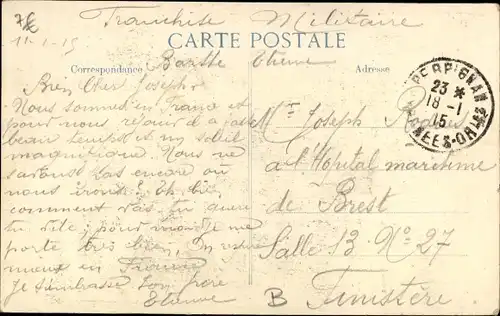 Franchise Militaire
11-1-15
CARTE POSTALE
Correspondance
Adresse
Etienne
Bien Cher Joseph
Nous sommes en France et
pour nous rejouir il a fait
beau temps et un soleil
magnifique. Nous ne
savons pas encore ou
nous irons. Eh bien
comment vas tu guéri
tu vite; pour moi je me
porte très bien. On
mieux en France
Je t'embrasse ton frère
Etienne
PERPIGNAN
23 *
18 - 1
15
PYRÉNÉES-ORLES
Mr Joseph
à l'Hopital maritime
de Brest
Salle 13. No 27
Finistère
B